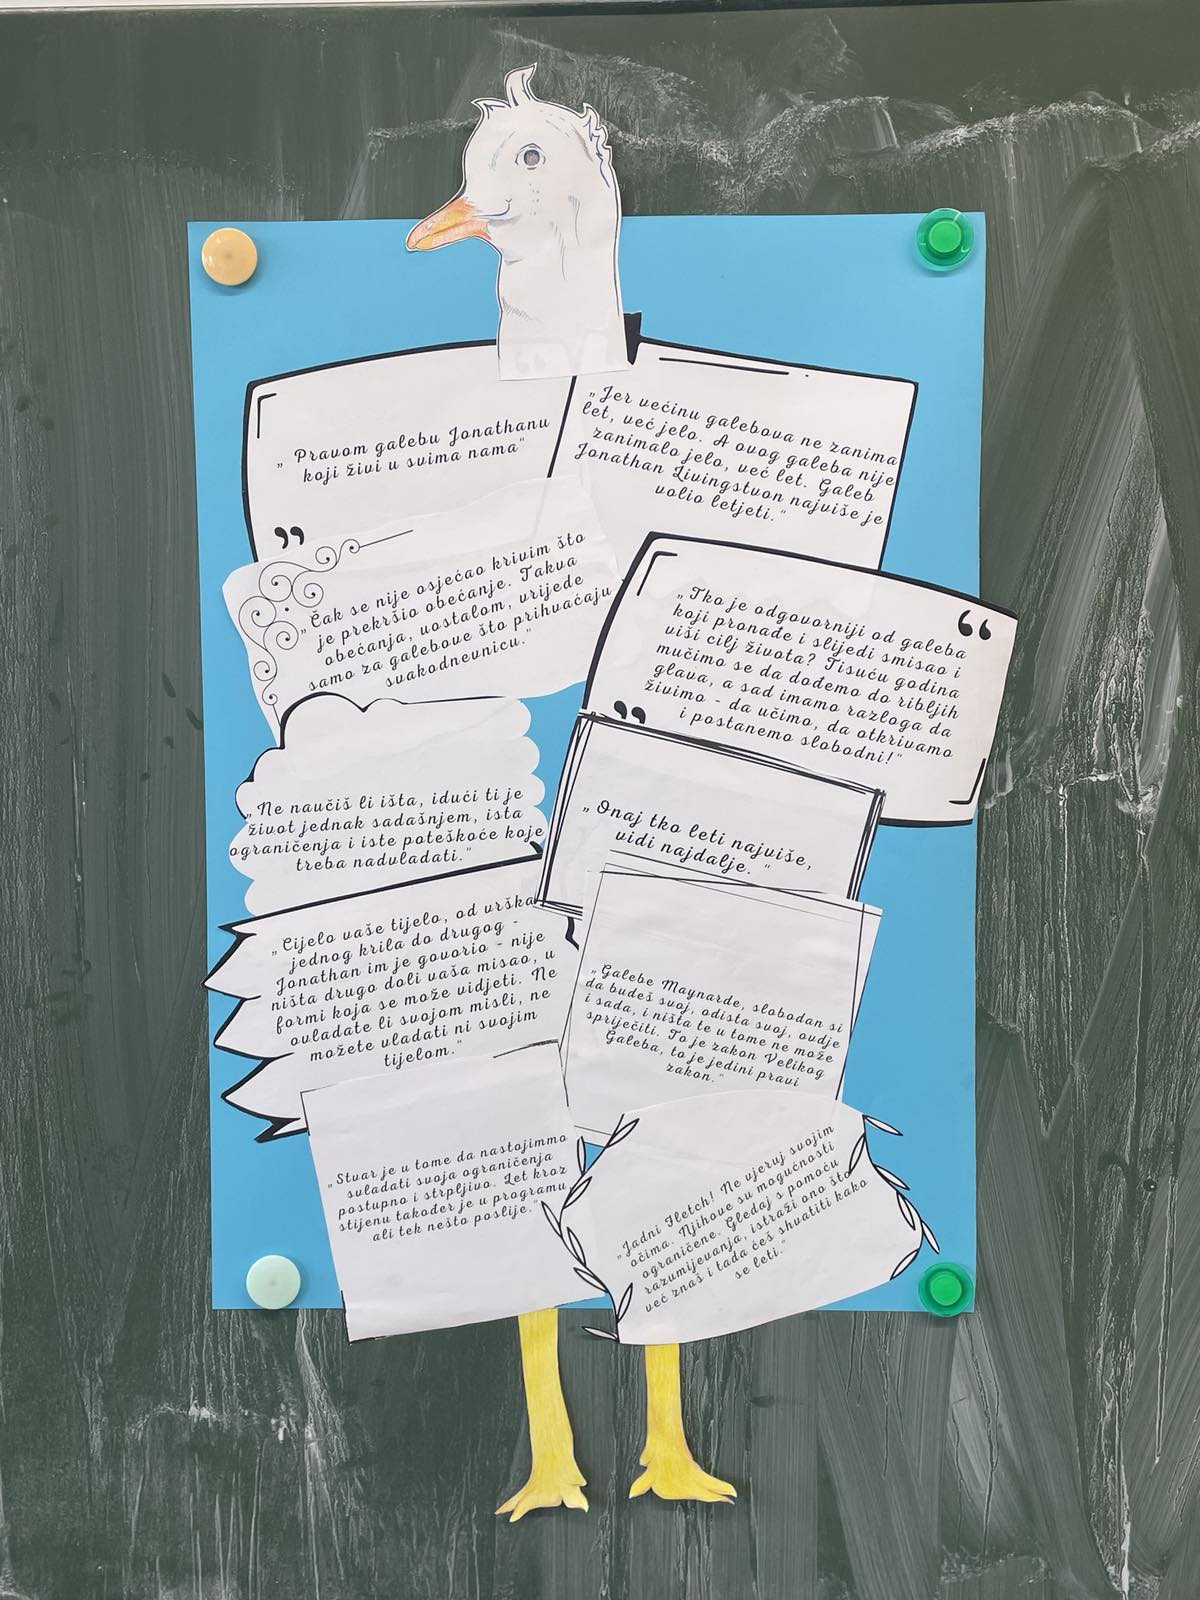 „ Pravom galebu Jonathanu
koji živi u svima nama"
„Jer većinu galebova ne zanima
let, već jelo. A ovog galeba nije
zanimalo jelo, već let. Galeb
Jonathan Livingstvon najviše je
volio letjeti."
„Čak se nije osjećao krivim što
je prekršio obećanje. Takva
obećanja, uostalom, vrijede
samo za galebove što prihvaćaju
svakodnevnicu."
„Tko je odgovorniji od galeba
koji pronađe i slijedi smisao i
viši cilj života? Tisuću godina
mučimo se da dođemo do ribljih
glava, a sad imamo razloga da
živimo - da učimo, da otkrivamo
i postanemo slobodni!"
„Ne naučiš li išta, idući ti je
život jednak sadašnjem, ista
ograničenja i iste poteškoće koje
treba nadvladati."
„ Onaj tko leti najviše,
vidi najdalje. "
„Cijelo vaše tijelo, od vrška
jednog krila do drugog -
Jonathan im je govorio - nije
ništa drugo doli vaša misao, u
formi koja se može vidjeti. Ne
ovladate li svojom misli, ne
možete vladati ni svojim
tijelom."
„Galebe Maynarde, slobodan si
da budeš svoj, odista svoj, ovdje
i sada, i ništa te u tome ne može
spriječiti. To je zakon Velikog
Galeba, to je jedini pravi
zakon."
„Stvar je u tome da nastojimmo
svladati svoja ograničenja
postupno i strpljivo. Let kroz
stijenu također je u programu,
ali tek nešto poslije."
„Jadni Fletch! Ne vjeruj svojim
očima. Njihove su mogućnosti
ograničene. Gledaj s pomoću
razumijevanja, istraži ono što
već znaš i tada ćeš shvatiti kako
se leti."